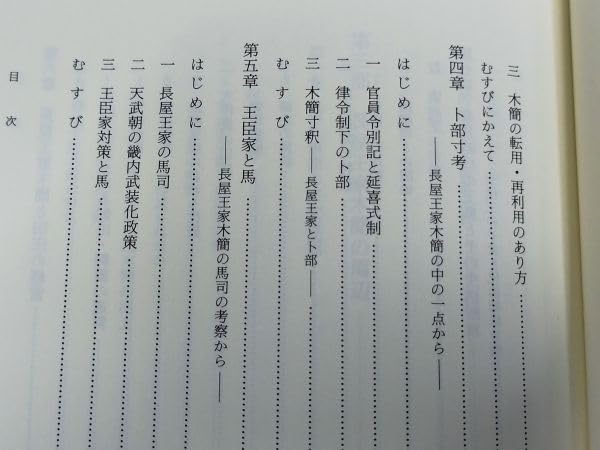 三 木簡の転用・再利用のあり方
むすびにかえて
第四章 卜部寸考
――長屋王家木簡の中の一点から――
はじめに
一 官員令別記と延喜式制
二 律令制下の卜部
三 木簡寸釈――長屋王家と卜部――
むすび
第五章 王臣家と馬
――長屋王家木簡の馬司の考察から――
はじめに
一 長屋王家の馬司
二 天武朝の畿内武装化政策
三 王臣家対策と馬
むすび
目次